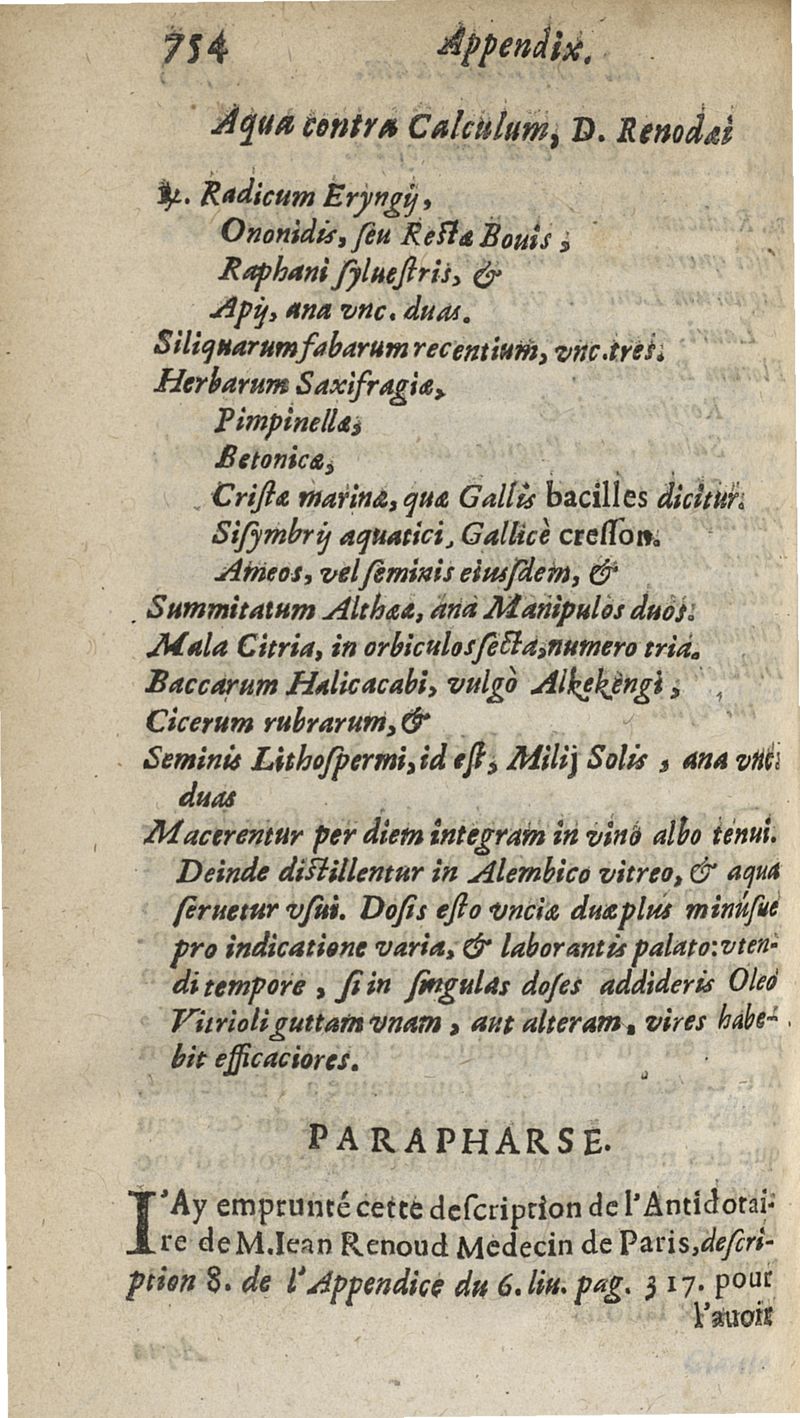 754 Appendix.
Aqua contra Calculum, D. Renodæi
℞. Radicum Eryngij,
Ononidis, ſeu Reſtæ Bouis,
Raphani ſylueſtris, &
Apij, ana vnc. duas.
Siliquarum fabarum recentium, vnc. tres.
Herbarum Saxifragiæ,
Pimpinellæ,
Betonicæ,
Criſtæ marinæ, quæ Gallis bacilles dicitur.
Siſymbrij aquatici, Gallicè creſſon.
Ameos, vel ſeminis eiuſdem, &
Summitatum Althææ, ana Manipulos duos.
Mala Citria, in orbiculos ſecta, numero tria.
Baccarum Halicacabi, vulgò Alkekengi,
Cicerum rubrarum, &
Seminis Lithoſpermi, id eſt, Milij Solis, ana vnc.
duas
Macerentur per diem integram in vino albo tenui.
Deinde diſtillentur in Alembico vitreo, & aqua
ſeruetur vſui. Doſis eſto vnciæ duæ plus minúſue
pro indicatione varia, & laborantis palato: vten-
di tempore, ſi in ſingulas doſes addideris Oleo
Vitrioli guttam vnam, aut alteram, vires habe-
bit efficaciores.
PARAPHARSE.
I'Ay emprunté cette deſcription de l'Antidotai-
re de M. Iean Renoud Medecin de Paris, deſcri-
ption 8. de l'Appendice du 6. liu. pag. 317. pour
l'auoir